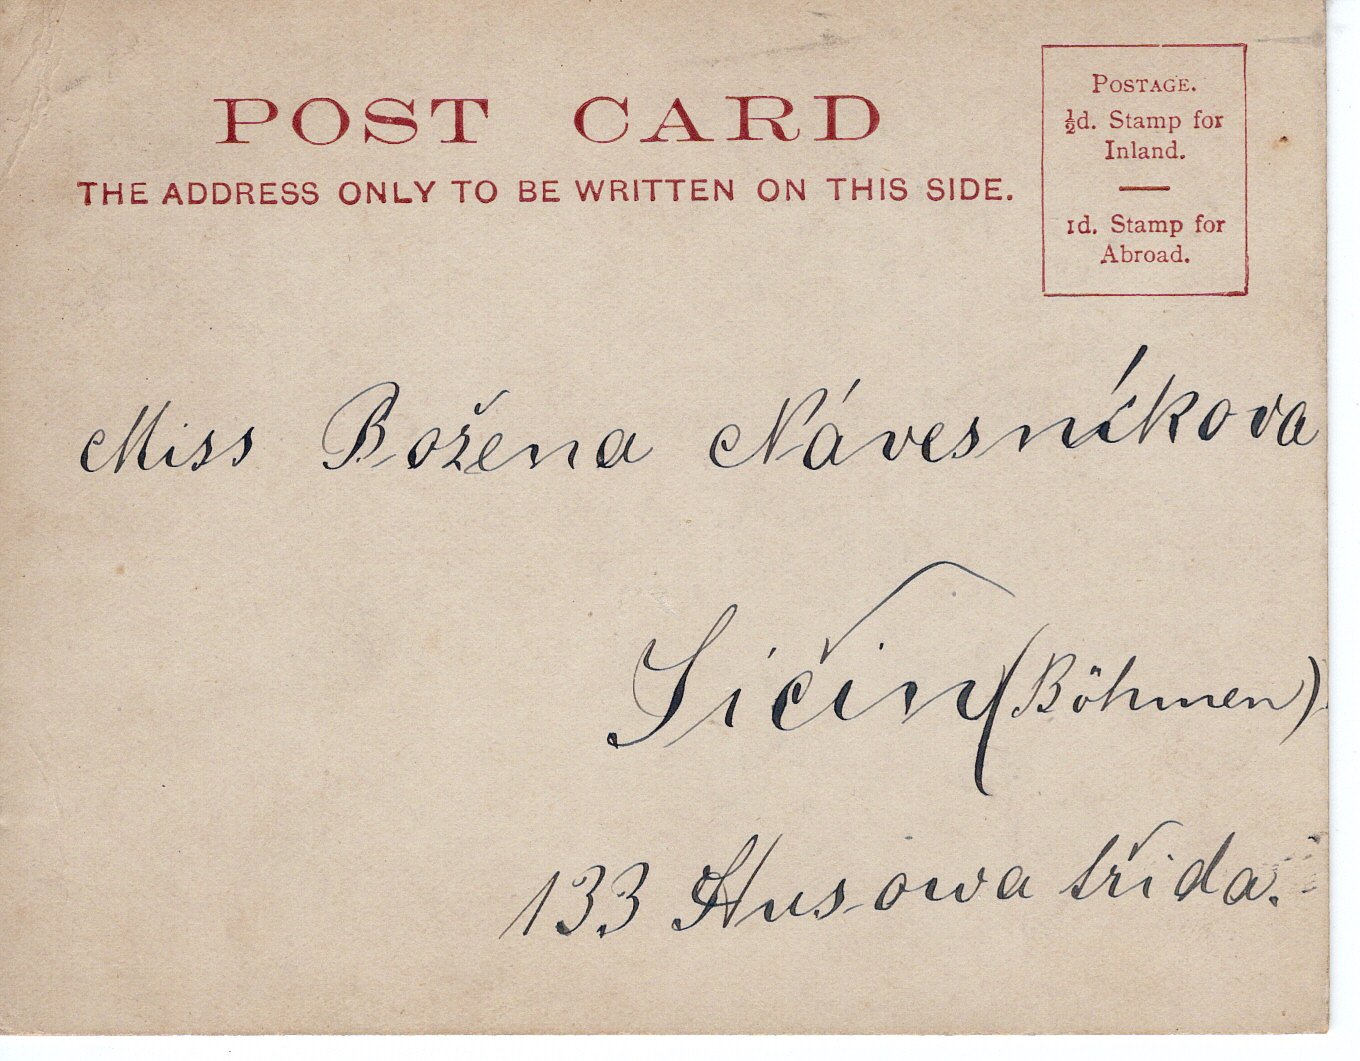 POST CARD
THE ADDRESS ONLY TO BE WRITTEN ON THIS SIDE.
POSTAGE.
½d. Stamp for
Inland.
1d. Stamp for
Abroad.
Miss Božena Návesníkova
Jičin (Böhmen).
133 Husowa třida.